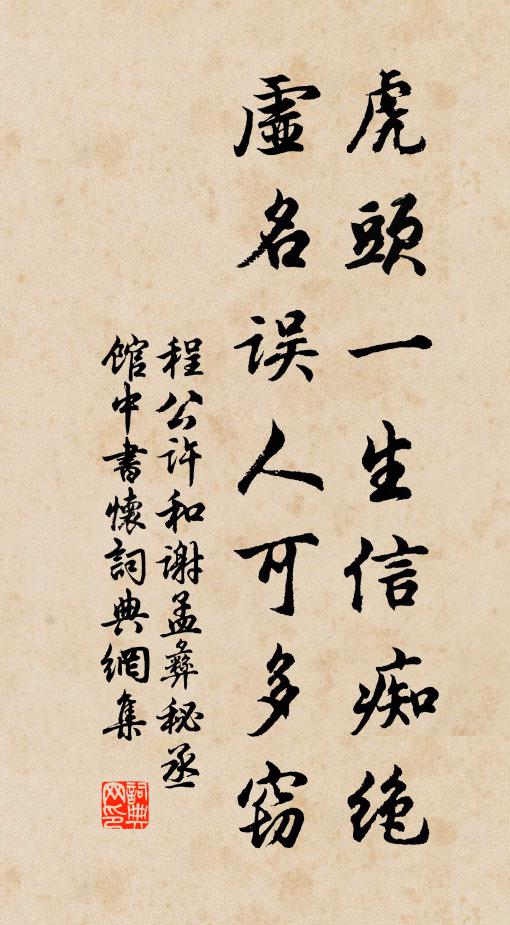 虎頭一生信痴绝
虛名误人可多窃
程公许和谢孟彝秘丞
館中書懷詞典網集
詞典
网印